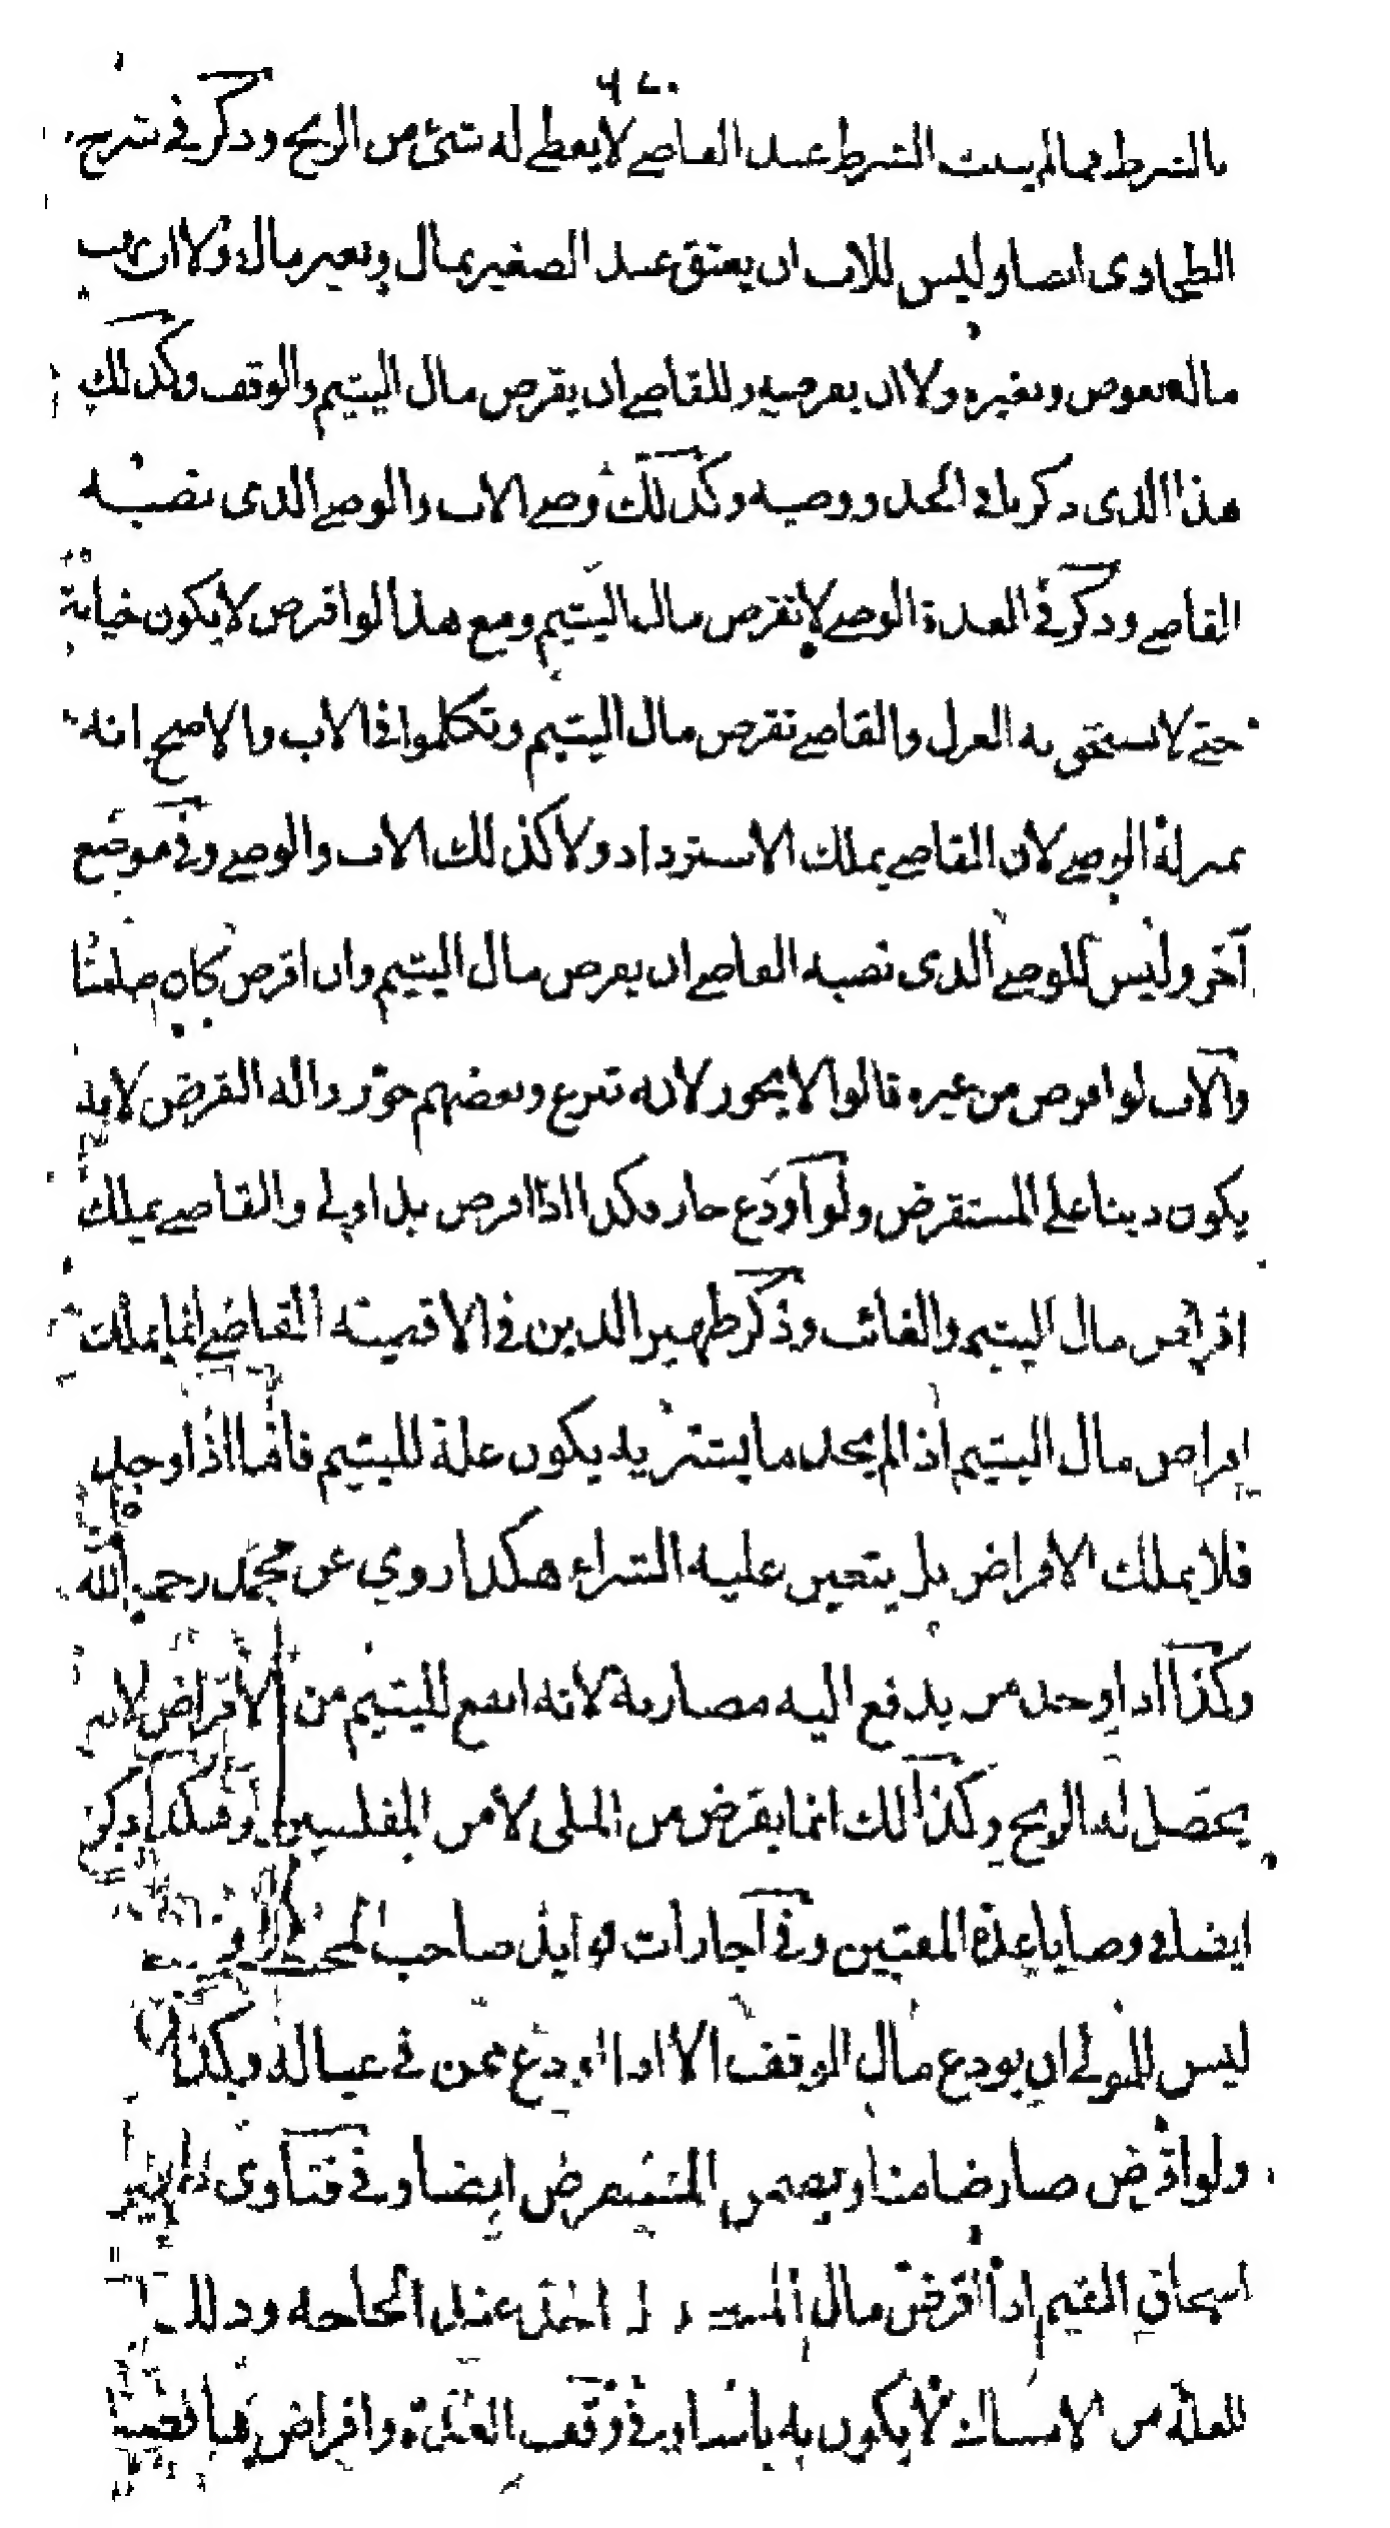 ٦٢٠
بالشرط فما لم يثبت الشرط عند القاضي لا يعطى له شيء من الربح وذكر في شرح
الطحاوي ايضا وليس للاب ان يعتق عبد الصغير بمال وبغير ماله ولا ان يهب
ماله بعوض وبغيره ولا ان يقرضه وللقاضي ان يقرض مال اليتيم والوقف وكذلك
هذا الذي ذكرنا في الجد ووصيه وكذلك وصي الاب والوصي الذي نصبه
القاضي وذكر في العدة الوصي لا يقرض مال اليتيم ومع هذا لو اقرض لا يكون خيانة
حتى لا يستحق به العزل والقاضي يقرض مال اليتيم وتكلموا في الاب والاصح انه
بمنزلة الوصي لان القاضي يملك الاسترداد ولا كذلك الاب والوصي وفي موضع
آخر وليس للوصي الذي نصبه القاضي ان يقرض مال اليتيم وان اقرض كان ضامنا
والاب لو اقرض من غيره قالوا لا يجوز لانه تبرع وبعضهم جوز والقرض لا بد
يكون دينا على المستقرض ولو اودع جاز فكذا اذا اقرض بل اولى والقاضي يملك
اقراض مال اليتيم والغائب وذكر ظهير الدين في الاقضية القاضي انما يملك
اقراض مال اليتيم اذا لم يجد ما يشتريه يكون غلة لليتيم فاما اذا وجد
فلا يملك الاقراض بل يتعين عليه الشراء هكذا روي عن محمد رحمه الله
وكذا اذا وجد من يدفع اليه مضاربة لانه انفع لليتيم من الاقراض لانه
يحصل له الربح وكذلك انما يقرض من الملى لا من المفلسين وهكذا ذكر
ايضا في وصايا عدة المفتين وفي اجارات فوايد صاحب المحيط
ليس للمولى ان يودع مال الوقف الا اذا اودع ممن في عياله وكذا
ولو اقرض صار ضامنا ويضمن المستقرض ايضا وفي فتاوى
اسحاق القيم اذا اقرض مال المسجد اخذ عند الحاجة وذلك
للغلة من الامساك لا يكون به باسا وفي وقف العدة واقراض